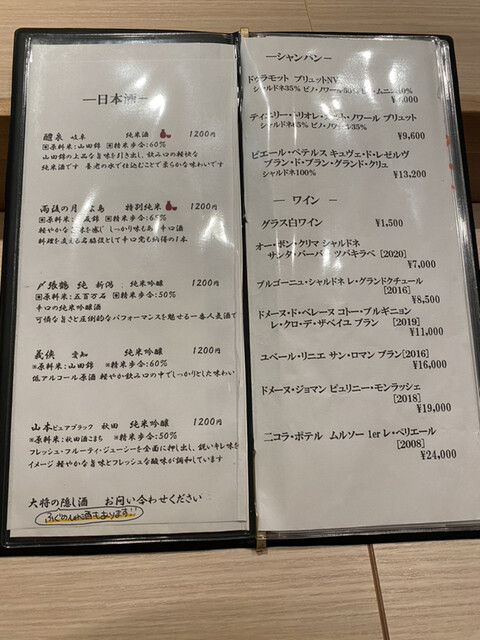 —日本酒—
醴泉 岐阜 純米酒 1200円
▣原料米:山田錦 ▣精米歩合:60%
山田錦の上品な旨味を引き出し、飲み口の軽快な
純米酒です 養老の水で仕込むことで柔らかな味わいです
雨後の月 広島 特別純米 1200円
▣精米歩合:65%
軽やかな旨味を感じ しっかり味もあり 辛口酒
料理を支える名脇役として辛口党も納得の1本
〆張鶴 純 新潟 純米吟醸 1200円
▣原料米:五百万石 ▣精米歩合:50%
辛口の純米吟醸酒
可憐な旨さと圧倒的なパフォーマンスを魅せる一番人気酒で
義侠 愛知 純米吟醸 1200円
※原料米:山田錦 ※精米歩合:60%
低アルコール原酒 軽やか飲み口の中でしっかりとした味わい
山本ピュアブラック 秋田 純米吟醸 1200円
※原料米:秋田酒こまち ※精米歩合:50%
フレッシュ・フルーティ・ジューシーを全面に押し出し、鋭いキレ味を
イメージ 軽やかな旨味とフレッシュな酸味が調和しています
大将の隠し酒 お問い合わせください
ふぐのひれ酒あります!!
—シャンパン—
ドゥラモット ブリュットNV
シャルドネ55% ピノ・ノワール35% ピノ・ムニエ10%
ブリュット
シャルドネ65% ピノ・ノワール35%
¥9,600
ピエール・ペテルス キュヴェ・ド・レゼルヴ
ブラン・ド・ブラン・グランド・クリュ
シャルドネ100%
¥13,200
— ワイン —
グラス白ワイン ¥1,500
オー・ボン・クリマ シャルドネ
サンタ・バーバラ ツバキラベ [2020]
¥7,000
ブルゴーニュ・シャルドネ レ・グランドクチュール
[2016]
¥8,500
ドメーヌ・ド・ベレーヌ コトー・ブルギニョン
レ・クロ・デ・ザベイユ ブラン [2019]
¥11,000
ユベール・リニエ サン・ロマン ブラン[2016]
¥16,000
ドメーヌ・ジョマン ピュリニー・モンラッシェ
[2018]
¥19,000
ニコラ・ポテル ムルソー 1er レ・ペリエール
[2008]
¥24,000